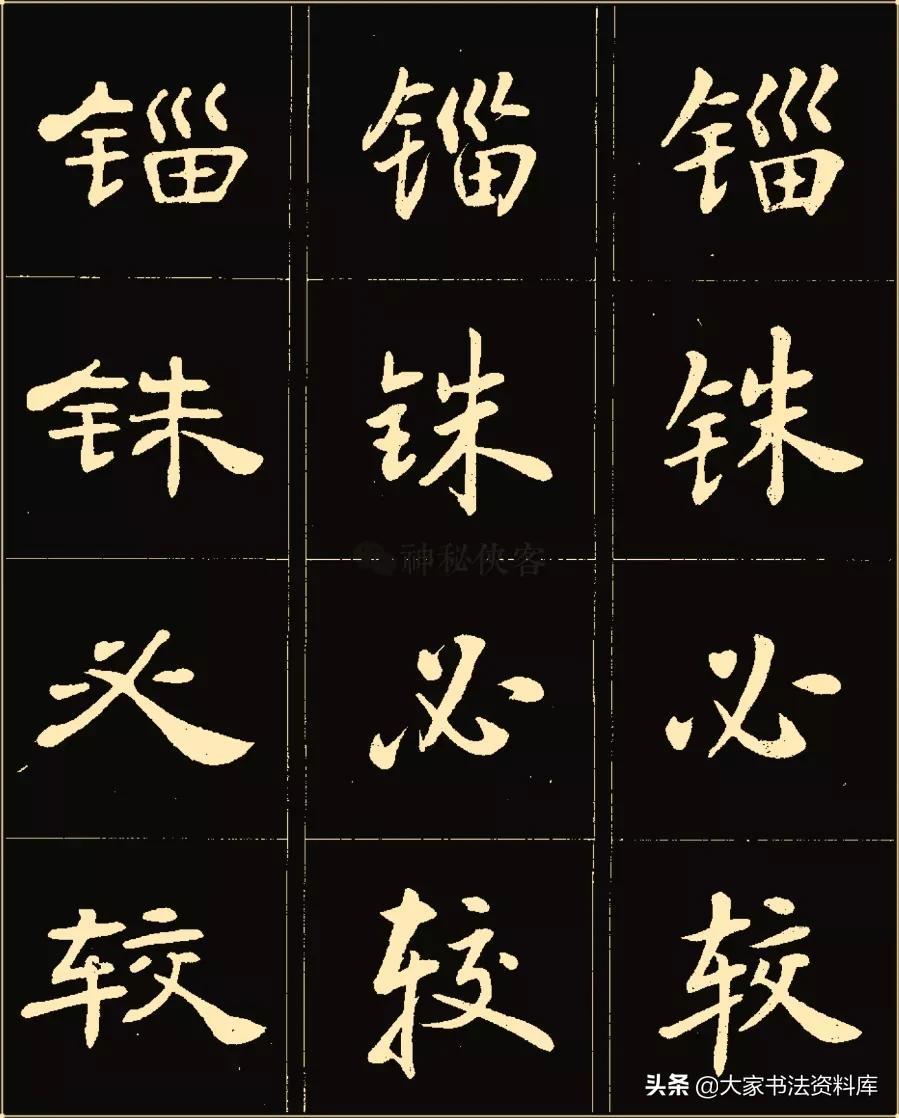 锱 锱 锱
铢 铢 铢
神秘侠客
必 必 必
较 较 较
头条 @大家书法资料库